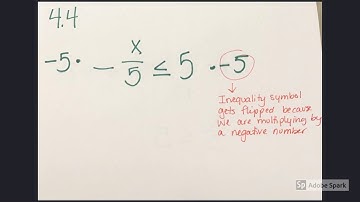 4.4
-5 · - x/5 ≤ 5 · -5
Inequality symbol
gets flipped because
we are multiplying by
a negative number
Adobe Spark